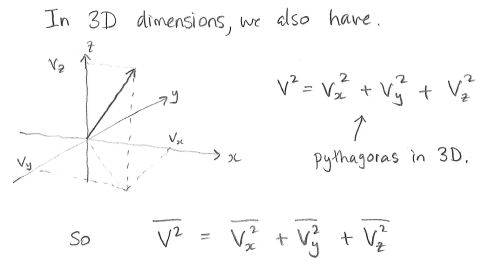 In 3D dimensions, we also have.
z
V_z
y
V² = V_x² + V_y² + V_z²
V_x
x
V_y
↑
pythagoras in 3D.
So V̅²̅ = V̅_x̅²̅ + V̅_y̅²̅ + V̅_z̅²̅